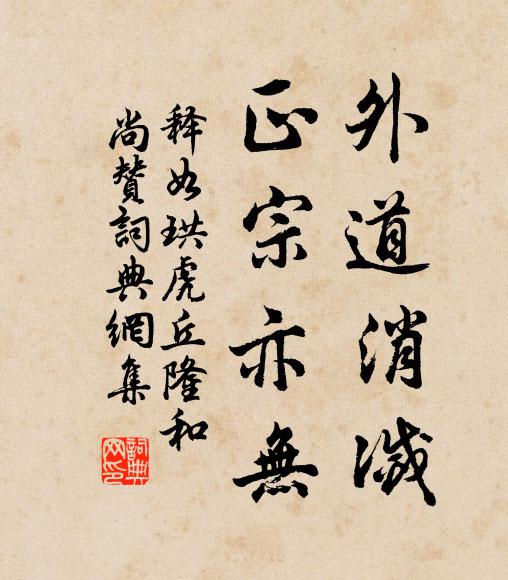 外道消滅
正宗亦無
释如珙虎丘隆和
尚贊詞典網集
詞典
网印